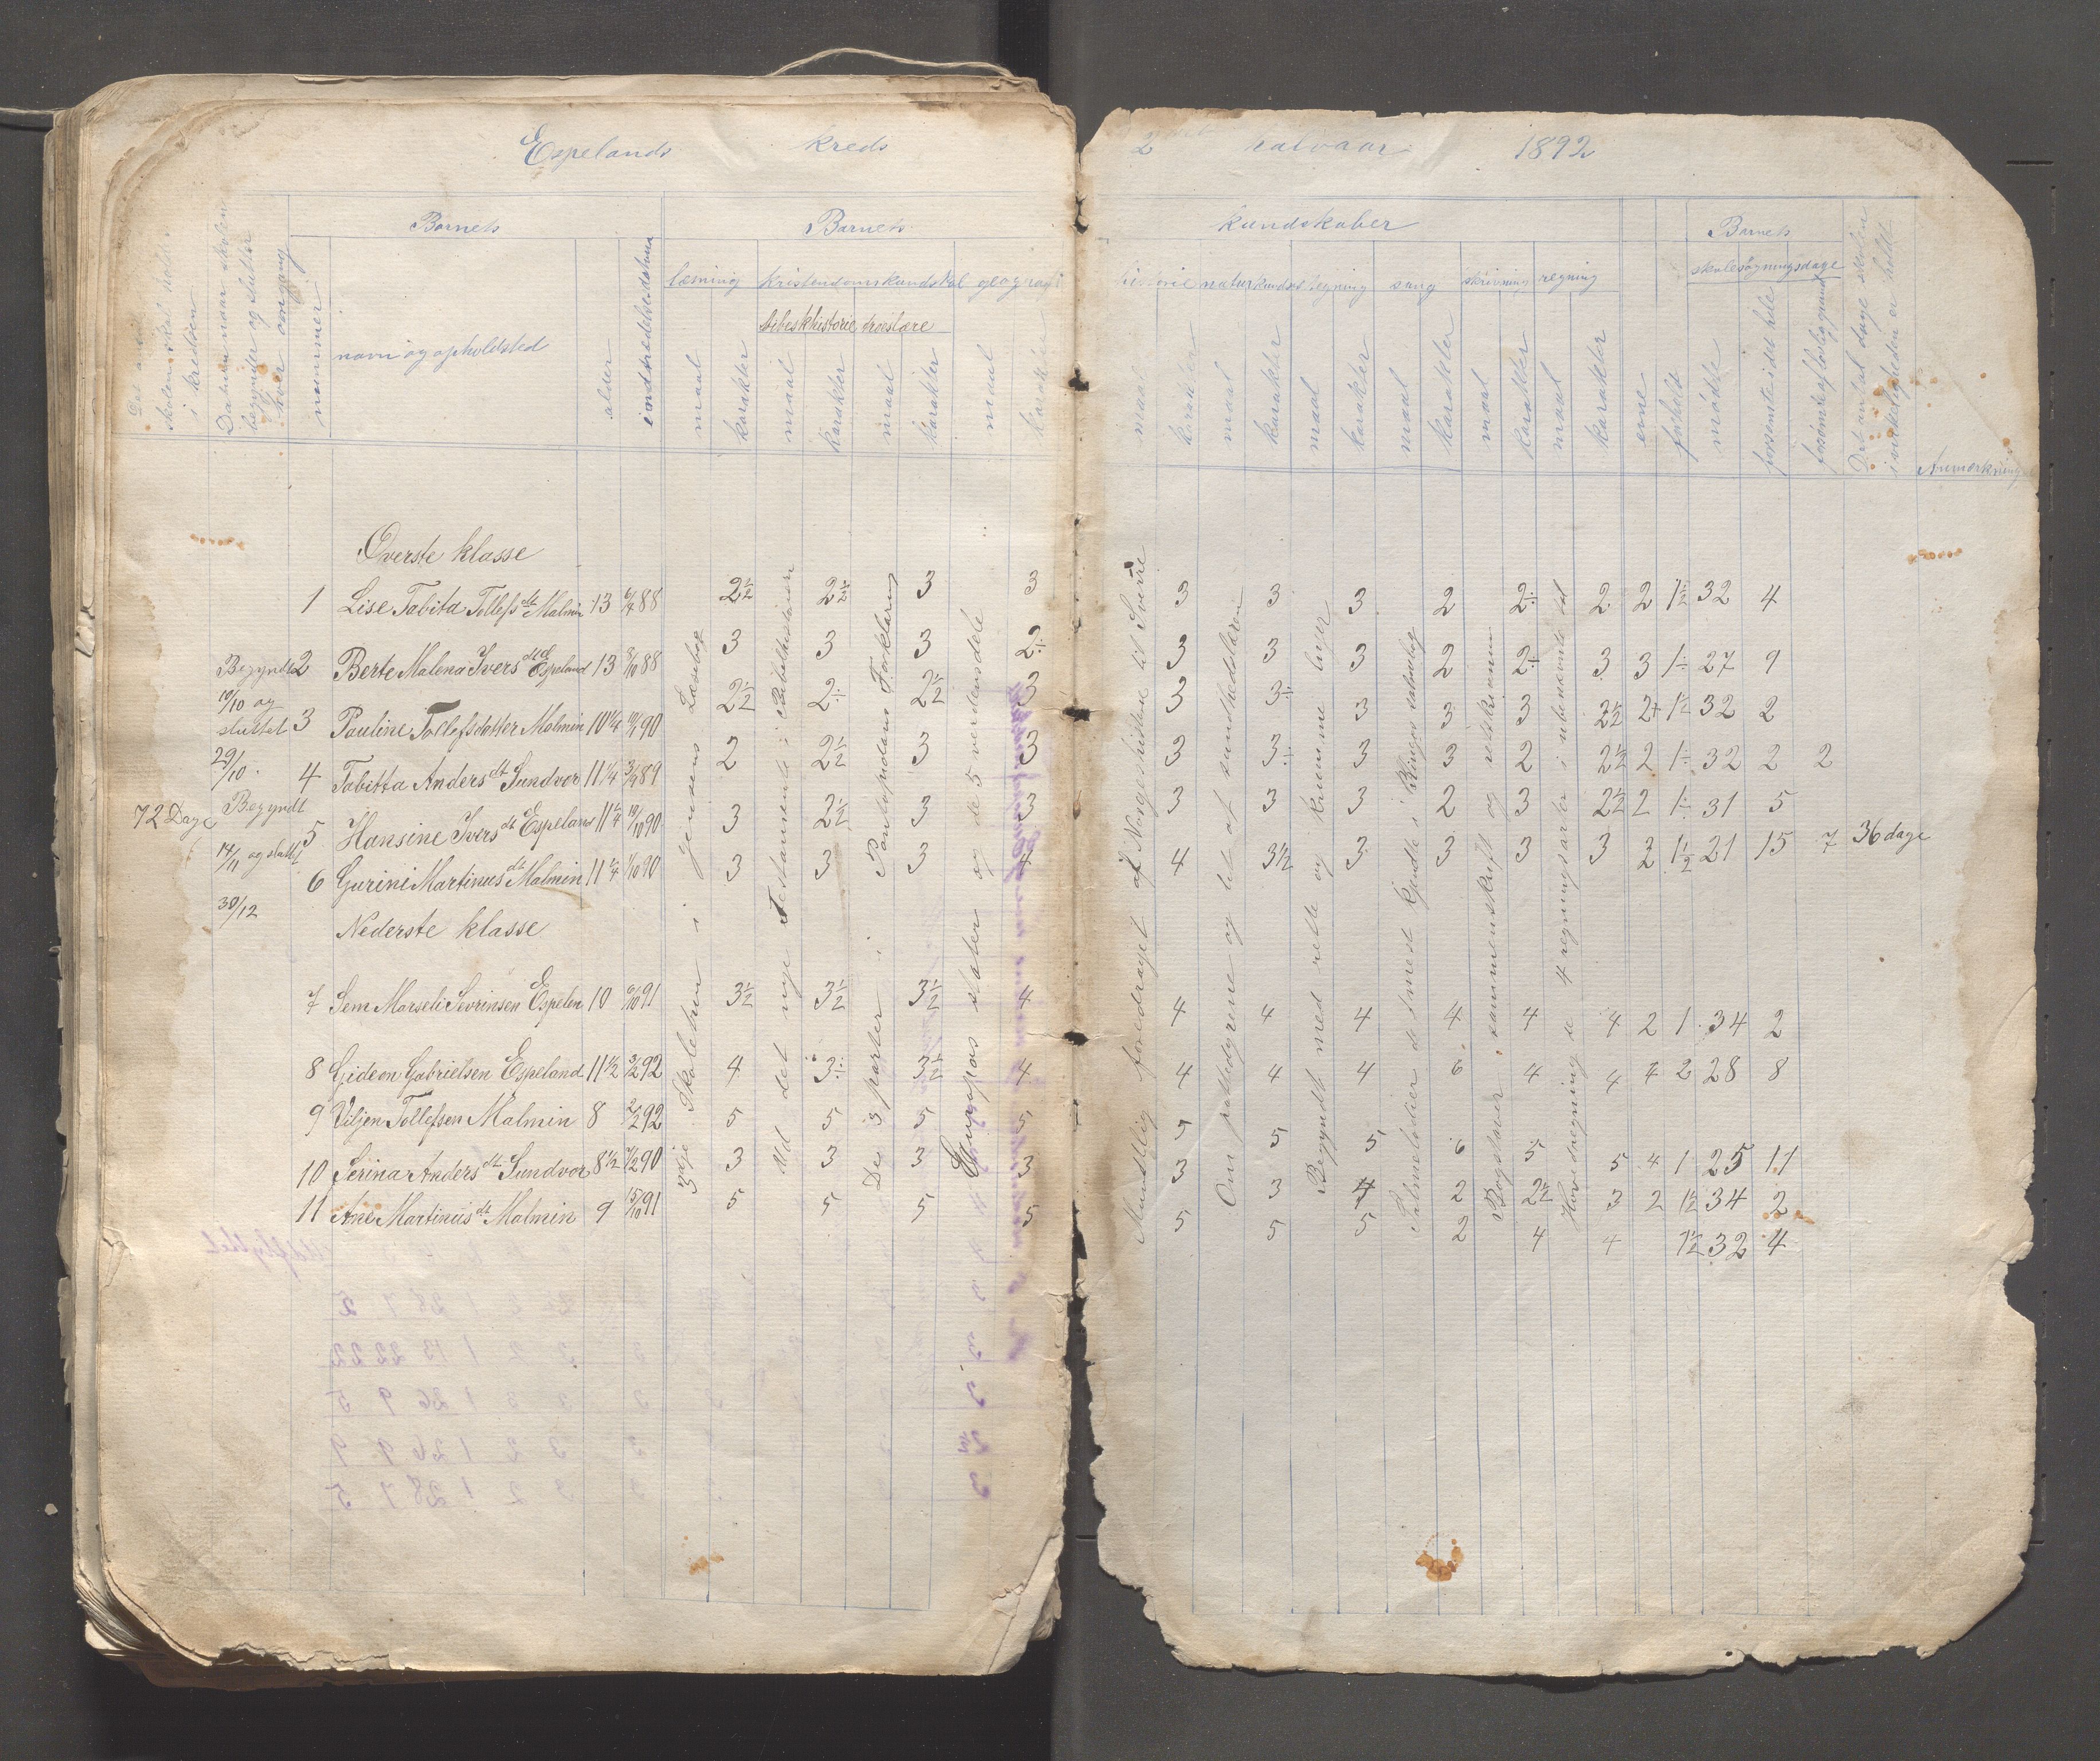 Espelands kreds
2 halvaar 1892
Barnets
Barnets
kundskaber
Barnets
i kredsen
Datum naar skolen
begynder og slutter
nummer
navn og opholdsted
alder
læsning
geografi
historie
naturkundsk
tegning
sang
skrivning
regning
skolesøgningsdage
maal karakter maal karakter maal karakter maal karakter
maal karakter maal karakter maal karakter maal karakter maal karakter maal karakter
evne
forhold
mødte
forsømte i det hele
Det antal dage skolen
i virkeligheden er holdt
Anmærkning
Øverste klasse
1 Lise Tabita Tollefs dt Malmin 13 6/4 88 2½ 2½ 3 3 3 3 3 2 2÷ 2 2 1½ 32 4
2 Berte Malena Ivers dt Espeland 13 8/10 88 3 3 3 2÷ 3 3 3 2 2÷ 3 3 1÷ 27 9
3 Pauline Tollefsdatter Malmin 10¼ 90 2½ 2÷ 2½ 3 3 3÷ 3 3 3 2½ 2+ 1½ 32 2
4 Tabitta Anders dt Sundvor 11¼ 3/9 89 2 2½ 3 3 3 3÷ 3 3 2 2½ 2 1÷ 32 2 2
5 Hansine Ivers dt Espeland 11¼ 90 3 2½ 3 3 3 3 3 2 3 2½ 2 1÷ 31 5
6 Gurini Martinus dt Malmin 11¼ 1/10 90 3 3 3 4 4 3½ 3 3 3 3 2 1½ 21 15 7 36 dage
Begyndt
19/10 og
sluttet
29/10.
72 Dage
Begyndt
14/11 og slutt
30/12
Nederste klasse
7 Sem Marseli Sevrinsen Espelan 10 6/10 91 3½ 3½ 3½ 4 4 4 4 4 4 4 2 1 34 2
8 Gideon Gabrielsen Espeland 11½ 3/2 92 4 3÷ 3½ 4 4 4 4 6 4 4 4 2 28 8
9 Viljen Tollefsen Malmin 8 2/2 92 5 5 5 5 5 5 5 6 5 5 4 1 25 11
10 Serina Anders dt Sundvor 8½ 90 3 3 3 3 3 3 4 2 2½ 3 2 1½ 34 2
11 Ane Martinus dt Malmin 9 15/10 91 5 5 5 5 5 5 5 2 4 4 1½ 32 4
3dje Skoletrin i Jensens Læsebog
Ud det nye Testamente i Bibelhistorien
De 3 parter i Pontopidans Forklaring
Europas stater og de 5 verdensdele
Mundtlig foredraget af Norgeshistrie til Sverre
Om pattedyrene og lit af sundhedslæren
Begyndt med rette og krumme linjer
Salmelodier de mest kjendte i
Bogstaver sammenskrift og retskrivning
Hovedregning de 4 regningsarter i ubenævnte tal